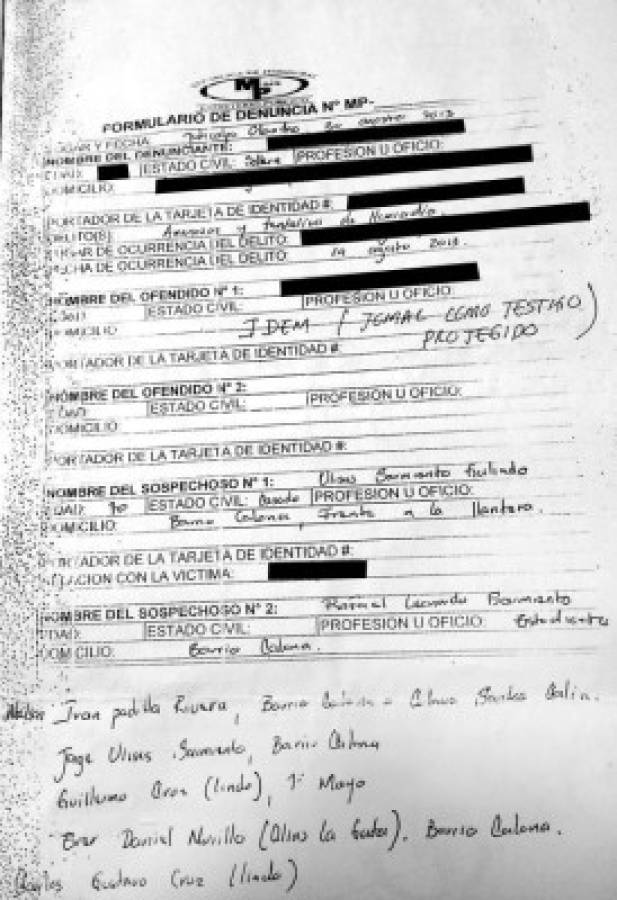 MP
FORMULARIO DE DENUNCIA N° MP-
LUGAR Y FECHA: Juticalpa Olancho, 20 agosto 2013
NOMBRE DEL DENUNCIANTE:
EDAD: ESTADO CIVIL: Soltero PROFESION U OFICIO:
DOMICILIO:
PORTADOR DE LA TARJETA DE IDENTIDAD #:
DELITO(S): Amenazas y tentativa de Homicidio.
LUGAR DE OCURRENCIA DEL DELITO:
FECHA DE OCURRENCIA DEL DELITO: 19 agosto 2013.
NOMBRE DEL OFENDIDO N° 1:
EDAD: ESTADO CIVIL: PROFESION U OFICIO:
DOMICILIO IDEM (TOMAR COMO TESTIGO
PROTEGIDO)
PORTADOR DE LA TARJETA DE IDENTIDAD #:
NOMBRE DEL OFENDIDO N° 2:
EDAD: ESTADO CIVIL: PROFESION U OFICIO:
DOMICILIO:
PORTADOR DE LA TARJETA DE IDENTIDAD #:
NOMBRE DEL SOSPECHOSO N° 1: Ulises Sarmiento Galindo
EDAD: 70 ESTADO CIVIL: Casado PROFESION U OFICIO:
DOMICILIO: Barrio Calona, frente a la llantera.
PORTADOR DE LA TARJETA DE IDENTIDAD #:
RELACION CON LA VICTIMA:
NOMBRE DEL SOSPECHOSO N° 2: Rafael Leonardo Sarmiento
EDAD: ESTADO CIVIL: PROFESION U OFICIO: Estudiante
DOMICILIO: Barrio Calona.
Ivan padilla Rivera, Barrio
Jorge Ulises Sarmiento, Barrio Calona
Guillermo Cruz (lindo), 1° Mayo
Daniel Murillo (Alias la Gata). Barrio Calona.
Carlos Gustavo Cruz (lindo)